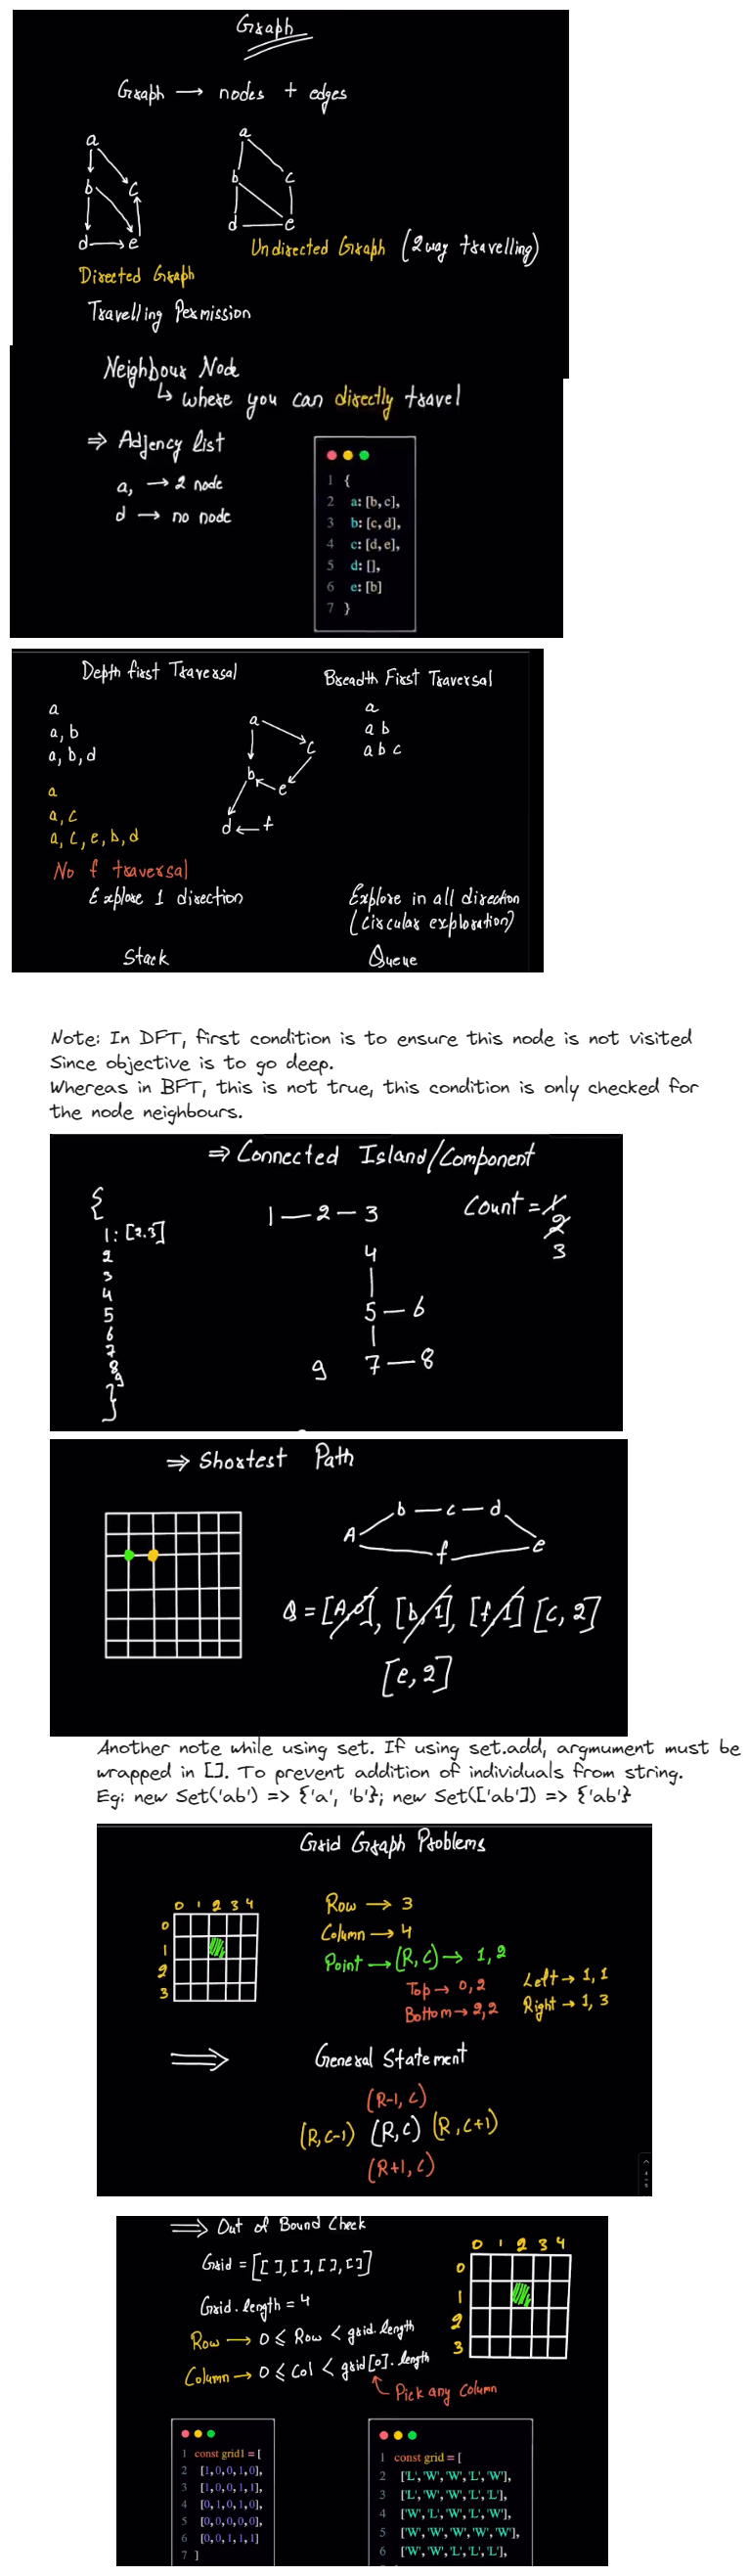 Graph
Graph → nodes + edges
a
b c
d e
a
b c
d e
Directed Graph
Undirected Graph (2 way travelling)
Travelling Permission
Neighbour Node
↳ where you can directly travel
⇒ Adjency list
a, → 2 node
d → no node
1 {
2 a: [b, c],
3 b: [c, d],
4 c: [d, e],
5 d: [],
6 e: [b]
7 }
Depth first Traversal
a
a, b
a, b, d
a
a, c
a, c, e, b, d
No f traversal
Explore 1 direction
Stack
a
c
b
e
d ← f
Breadth First Traversal
a
a b
a b c
Explore in all direction
(circular exploration)
Queue
Note: In DFT, first condition is to ensure this node is not visited
Since objective is to go deep.
Whereas in BFT, this is not true, this condition is only checked for
the node neighbours.
⇒ Connected Island/Component
{
1: [2,3]
2
3
4
5
6
7
8
9
}
1 — 2 — 3
4
5 — 6
9 7 — 8
Count = 1
2
3
⇒ Shortest Path
b — c — d
A e
f
Q = [A,0], [b,1], [f,1] [c,2]
[e,2]
Another note while using set. If using set.add, argmument must be
wrapped in []. To prevent addition of individuals from string.
Eg: new Set('ab') => {'a', 'b'}; new Set(['ab']) => {'ab'}
Grid Graph Problems
0 1 2 3 4
0
1
2
3
Row → 3
Column → 4
Point → (R, C) → 1, 2
Top → 0, 2
Bottom → 2, 2
Left → 1, 1
Right → 1, 3
⇒ General Statement
(R-1, C)
(R, C-1) (R, C) (R, C+1)
(R+1, C)
⇒ Out of Bound Check
Grid = [[ ], [ ], [ ], [ ]]
Grid.length = 4
Row → 0 ≤ Row < grid.length
Column → 0 ≤ Col < grid[0].length
Pick any column
0 1 2 3 4
0
1
2
3
1 const grid1 = [
2 [1, 0, 0, 1, 0],
3 [1, 0, 0, 1, 1],
4 [0, 1, 0, 1, 0],
5 [0, 0, 0, 0, 0],
6 [0, 0, 1, 1, 1]
7 ]
1 const grid = [
2 ['L', 'W', 'W', 'L', 'W'],
3 ['L', 'W', 'W', 'L', 'L'],
4 ['W', 'L', 'W', 'L', 'W'],
5 ['W', 'W', 'W', 'W', 'W'],
6 ['W', 'W', 'L', 'L', 'L'],